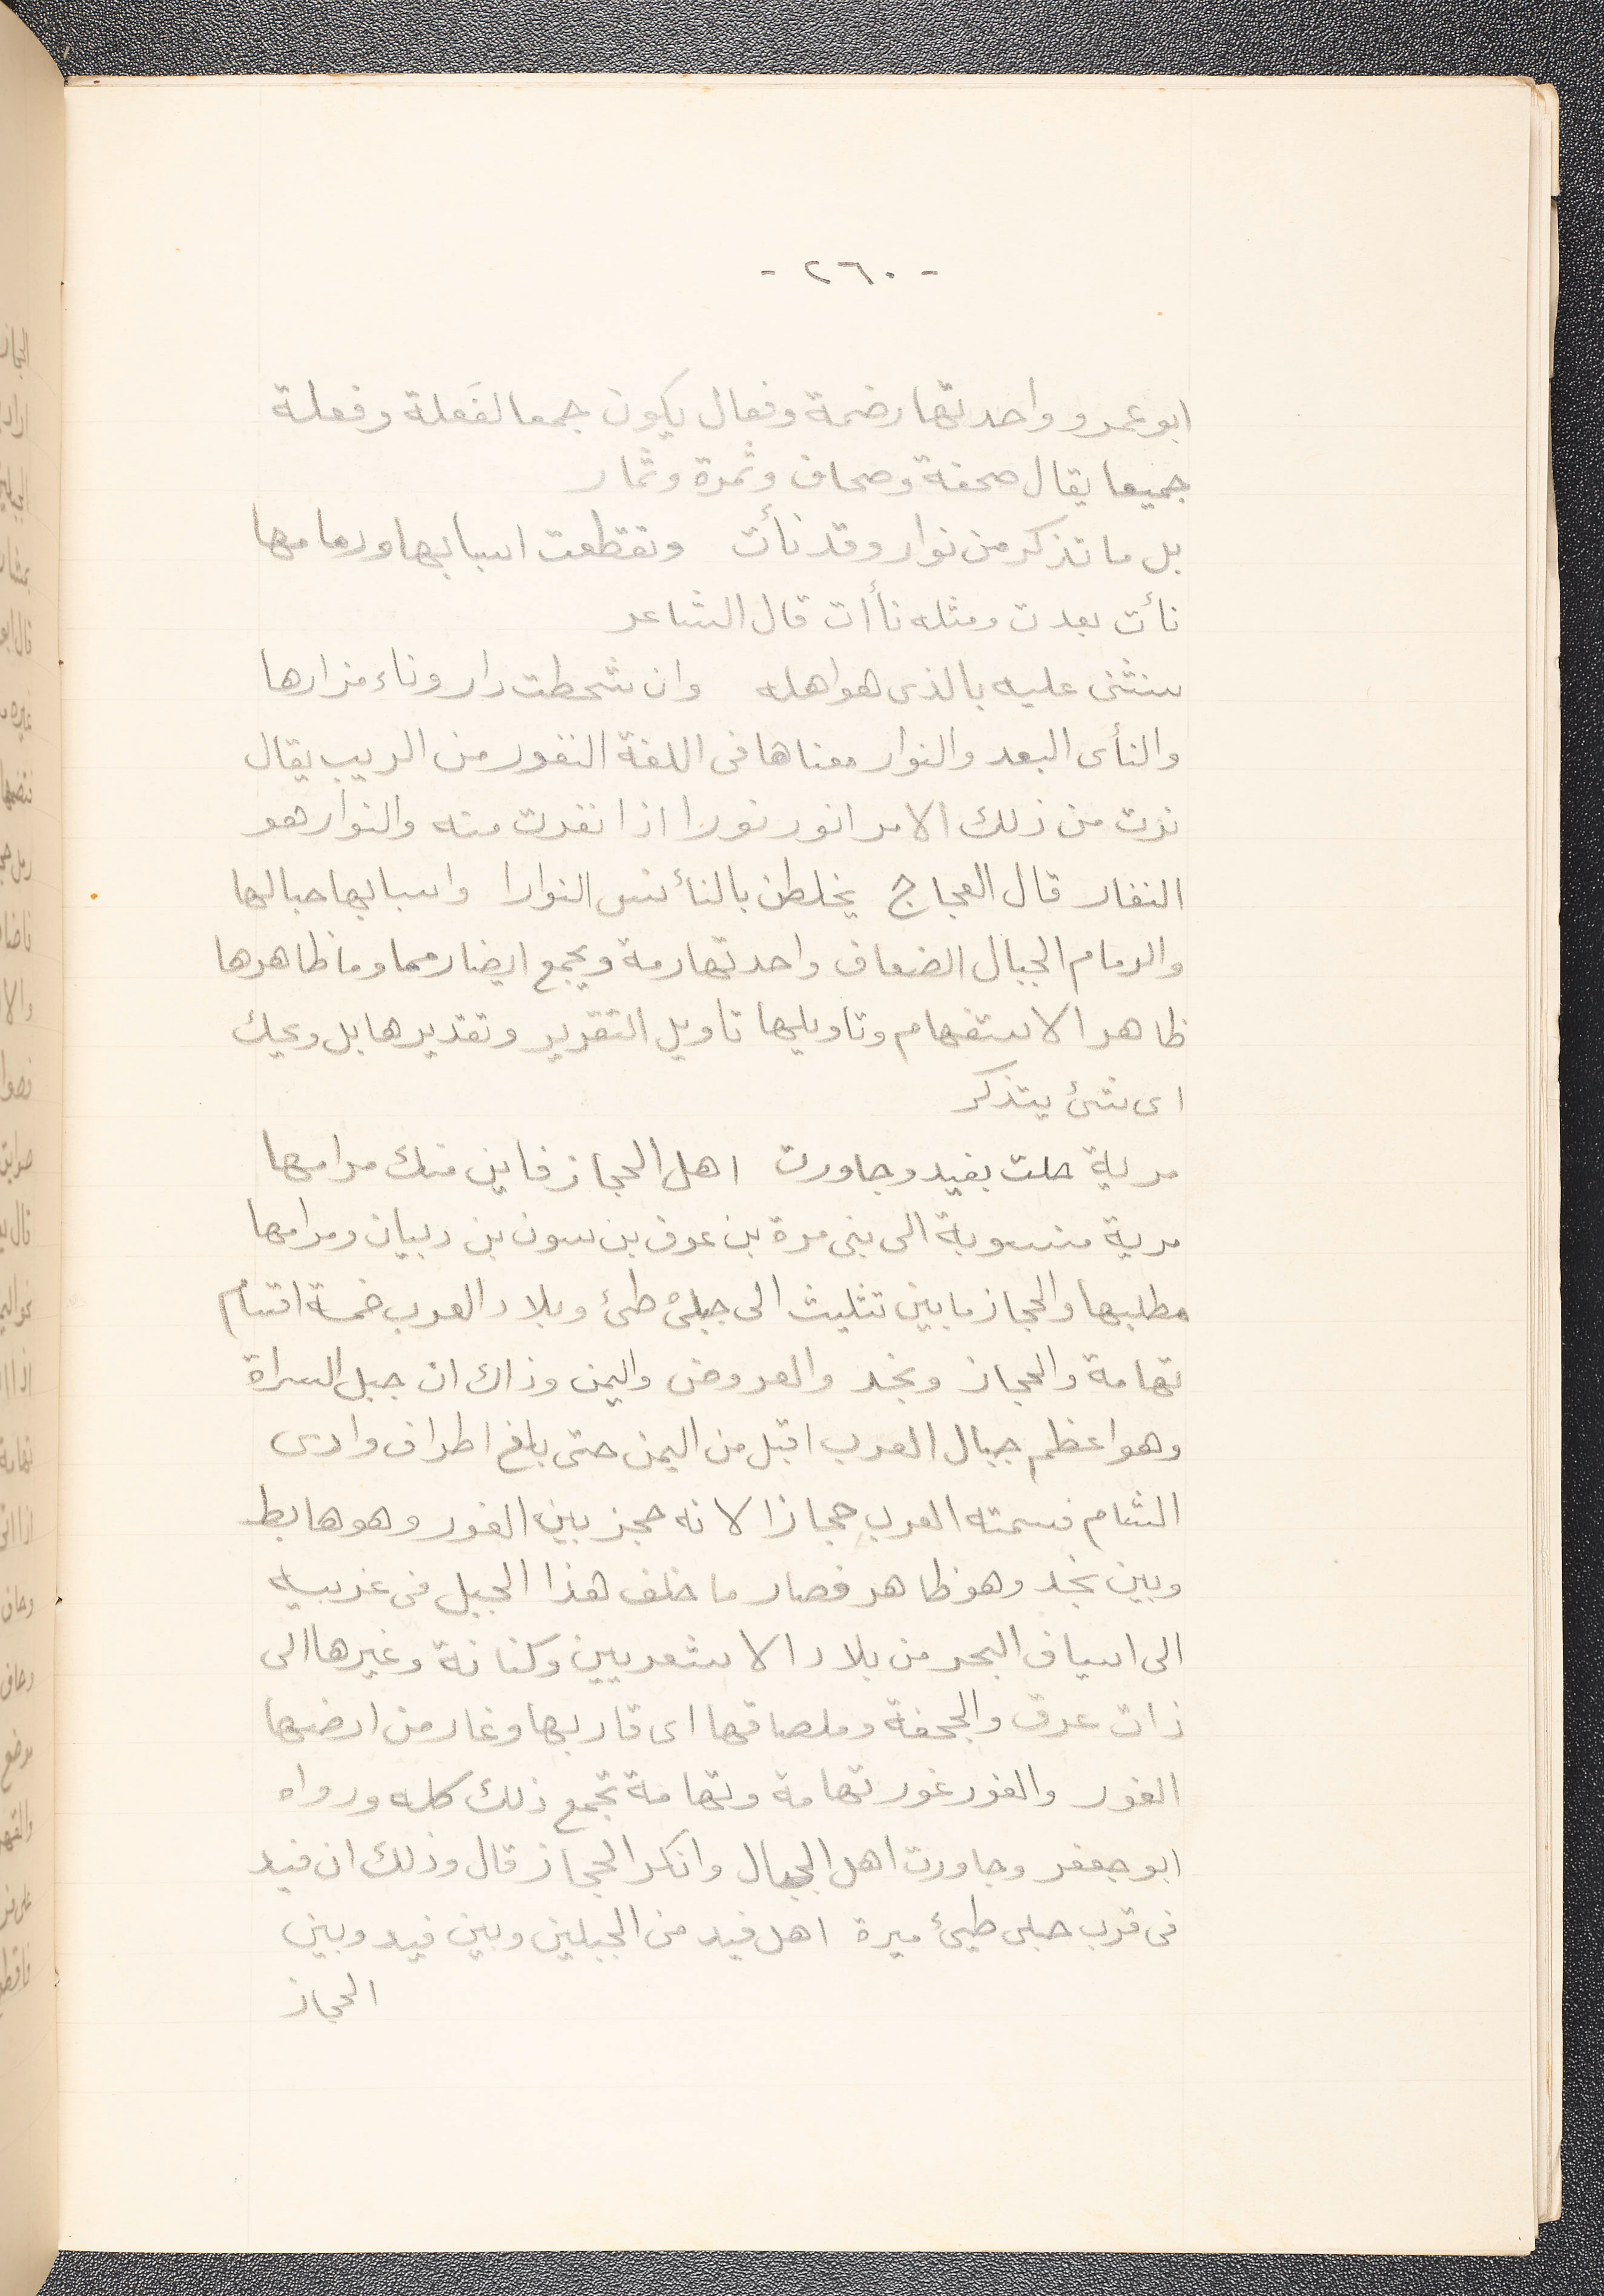 - ٢٦٠ -
ابو عمرو واحدتها رضمة وفعال يكون جمعا لفَعلة وفعلة
جميعا يقال صحفة وصحاف وثمرة وثمار
بل ما تذكر من نوار وقد نأت وتقطعت اسبابها ورمامها
نأت بعدت ومثله نأات قال الشاعر
سنثنى عليه بالذى هو اهله وان شحطت دار وناء مزارها
والنأى البعد والنوار معناها فى اللغة النفور من الريب يقال
نرت من ذلك الامر انور نورا اذا نفرت منه والنوار هو
النفار قال العجاج يخلطن بالنأنس النوارا واسبابها حبالها
والرمام الحبال الضعاف واحدتها رمة ويجمع ايضا رمما وما ظاهرها
ظاهر الاستفهام وتاويلها تاويل التقرير وتقديرها بل ويحك
اى شئ يتذكر
مرية حلت بفيد وجاورت اهل الحجاز فاين منك مرامها
مرية منسوبة الى بنى مرة بن عوف بن سون بن ذبيان ومرامها
مطلبها والحجاز ما بين تثليث الى جبلى طئ وبلاد العرب خمسة اقسام
تهامة والحجاز ونجد والعروض واليمن وذاك ان جبل السراة
وهو اعظم جبال العرب اقبل من اليمن حتى بلغ اطراف وادى
الشام فسمته العرب حجازا لانه حجز بين الغور وهو هابط
وبين نجد وهو ظاهر فصار ما خلف هذا الجبل فى غربيه
الى اسياف البحر من بلاد الاشعريين وكنانة وغيرها الى
ذات عرق والجحفة وملصاقها اى قاربها وغار من ارضها
الغور والغور غور تهامة وتهامة تجمع ذلك كله ورواه
ابو جعفر وجاورت اهل الجبال وانكر الحجاز قال وذلك ان فيد
فى قرب جبلى طيئ ميرة اهل فيد من الجبلين وبين فيد وبين
الحجاز